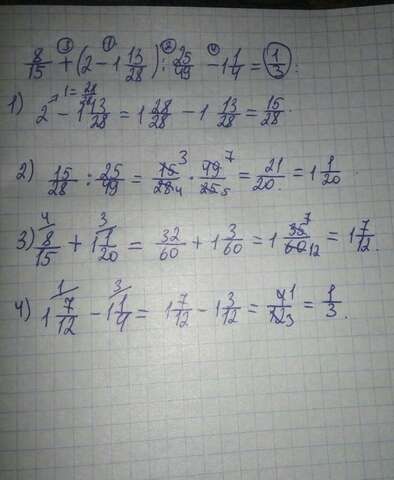 ③ ① ② ④
8/15 + (2 - 1 13/28) : 25/49 - 1 1/4 = 1/3.
1 = 28/28
1) 2 - 1 13/28 = 1 28/28 - 1 13/28 = 15/28.
2) 15/28 : 25/49 = 15³/28₄ · 49⁷/25₅ = 21/20. = 1 1/20.
4 3
3) 8/15 + 1 1/20 = 32/60 + 1 3/60 = 1 35⁷/60₁₂ = 1 7/12.
1 3
4) 1 7/12 - 1 1/4 = 1 7/12 - 1 3/12 = 4¹/12₃ = 1/3.